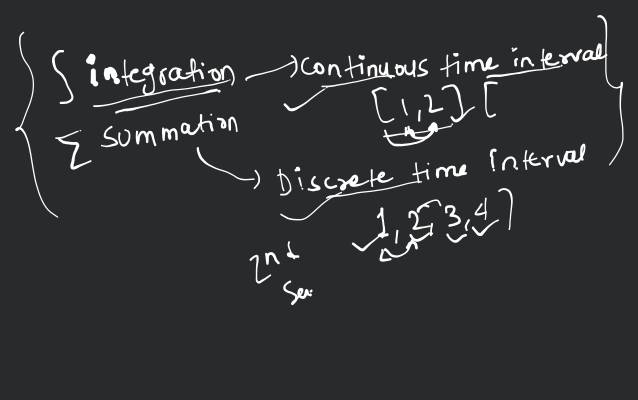 ∫ integration → continuous time interval
[1,2] [
Σ summation
→ Discrete time interval
1, 2, 3, 4)
2nd